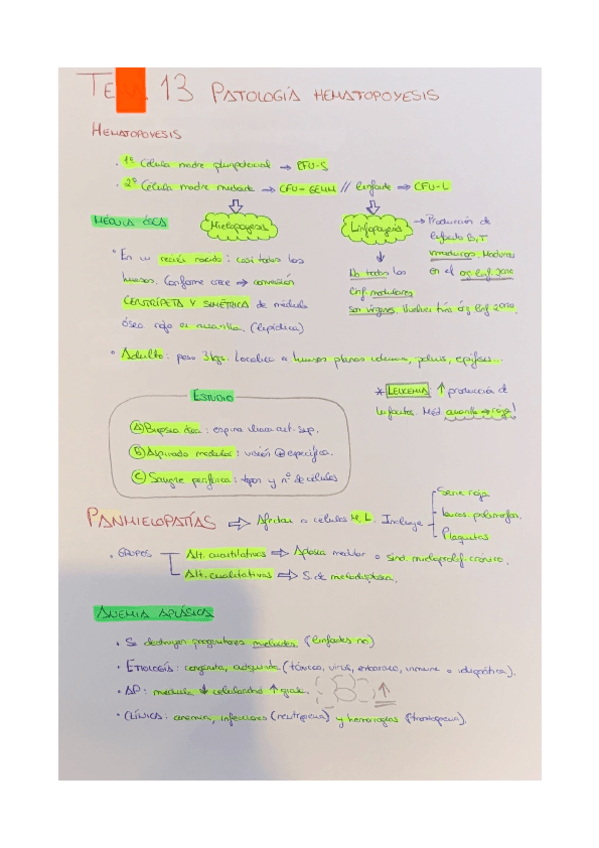 TE 13 PATOLOGÍA HEMATOPOYESIS
HEMATOPOYESIS
· 1º Célula madre pluripotencial → CFU-S
· 2º Célula madre mieloide → CFU-GEMM // linfoide → CFU-L
MÉDULA ÓSEA
Mielopoyesis
Linfopoyesis
→ Producción de
linfocitos B, T
inmaduros. Maduran
en el
° En un recién nacido: casi todos los
huesos. Conforme crece → conversión
CENTRÍPETA Y SIMÉTRICA de médula
ósea roja a amarilla. (lipídica)
No todos los
linf. medulares
son vírgenes. Vuelven tras órg linf 2ario.
° Adulto: pesa 3kgs. Localiza a huesos planos, pelvis, epífisis...
* LEUCEMIA: ↑ producción de
linfocitos. Méd amarilla → roja!
ESTUDIO
A Biopsia ósea: espina iliaca ant. sup.
B Aspirado medular: visión específica.
C Sangre periférica: tipos y nº de células
PANMIELOPATÍAS ⇒ Afectan a células M, L. Incluye
Serie roja
Leucos. polimorfon.
Plaquetas
· GRUPOS
Alt. cuantitativas ⇒ Aplasia medular o Sínd. mieloprolif. crónico.
Alt. cualitativas ⇒ S. de mielodisplasia.
ANEMIA APLÁSICA
· Se destruyen progenitores mieloides (linfoides no)
· ETIOLOGÍA: congénita, adquirida (tóxicos, virus, embarazo, inmune o idiopática).
· AP: médula ↓ celularidad ↑ grasa.
· CLÍNICA: anemia, infecciones (neutropenia) y hemorragias (trombopenia).